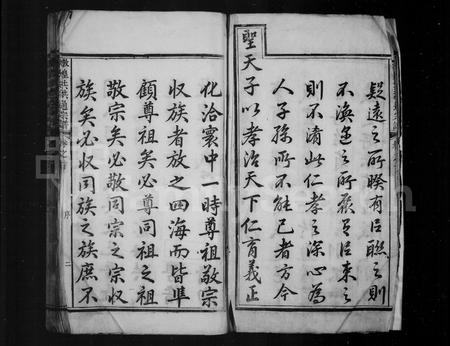 疑遠之所暌有以聯之則
不渙近之所萃有以束之
則不淆此仁孝之深心為
人子孫所不能已者方今
聖天子以孝治天下仁育義正
化洽寰中一時尊祖敬宗
收族者放之四海而皆準
顧尊祖矣必尊同祖之祖
敬宗矣必敬同宗之宗收
族矣必收同族之族庶不
序
二